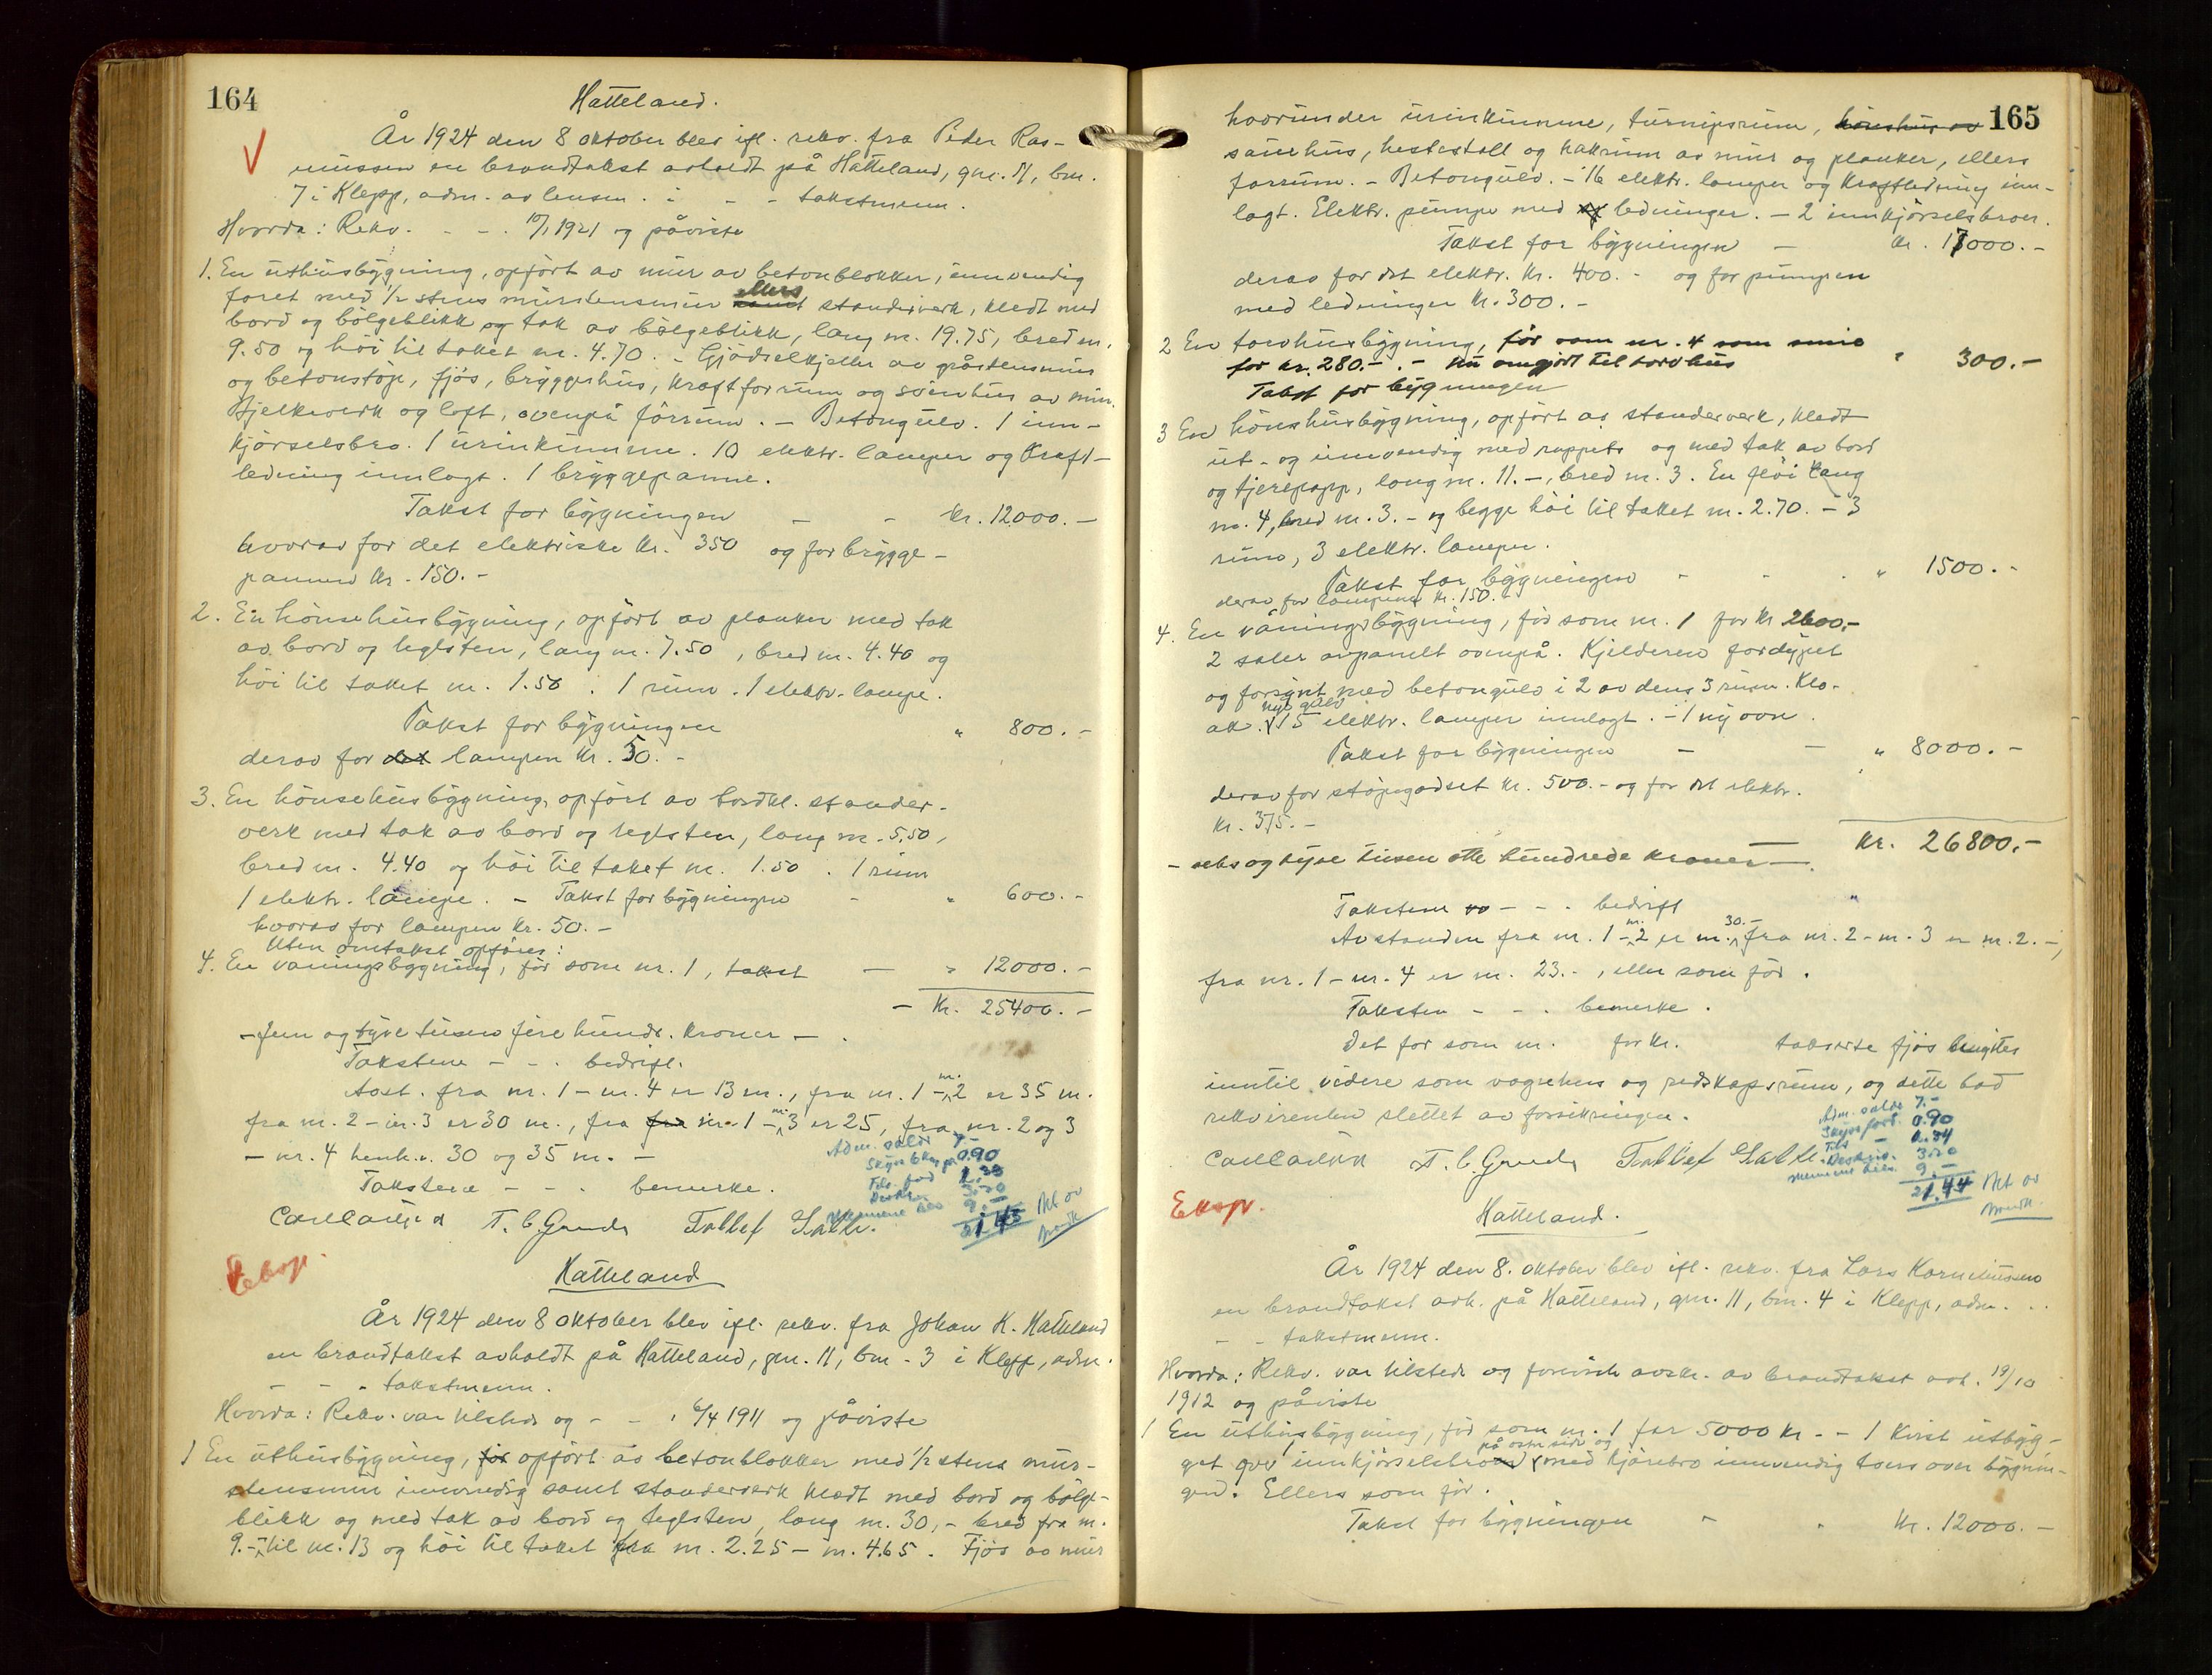 164
Hatteland.
År 1924 den 8 oktober blev ifl. rekv. fra Peder Ras-
mussen en brandtakst avholdt på Hatteland, gnr. 11, bnr.
7 i Klepp, adm. av lensm. i - - takstmenn.
Hvorda: Rekv. - - . 10/1 1921 og påviste
1. En uthusbygning, opført av mur av betonblokker, innvendig
foret med 1/2 stens murstensmur ellers standerverk, kledt med
bord og bølgeblikk og tak av bølgeblikk, lang m. 19.75, bred m.
9.50 og høi til taket m. 4.70. - Gjødselkjeller av gråstensmur
og betonstøp, fjøs, bryggerhus, kraftforrum og svinhus av mur.
Bjelkeverk og loft, ovenpå fôrrum. - Betongulv. 1 inn-
kjørselsbro. 1 urinkumme. 10 elektr. lamper og Kraft-
ledning innlagt. 1 bryggepanne.
Takst for bygningen - - kr. 12000.-
hvorav for det elektriske kr. 350 og for brygge-
pannen kr. 150.-
2. En hønsehusbygning, opført av planker med tak
av bord og teglsten, lang m. 7.50, bred m. 4.40 og
høi til taket m. 1.50. 1 rum. 1 elektr. lampe.
Takst for bygningen " 800.-
derav for det lampen kr. 50.-
3. En hønsehusbygning, opført av bordkl. stander-
verk med tak av bord og teglsten, lang m. 5.50,
bred m. 4.40 og høi til taket m. 1.50. 1 rum
1 elektr. lampe. - Takst for bygningen - " 600.-
hvorav for lampen kr. 50.-
Uten omtakst opføres:
4. En våningsbygning, før som nr. 1, takst - " 12000.-
- Kr. 25400.-
- fem og tyve tusen fire hundr. kroner - .
Takstene - - . bedrift.
Avst. fra nr. 1 - nr. 4 er 13 m., fra nr. 1 - nr. 2 er 35 m.
fra nr. 2 - nr. 3 er 30 m., fra fra nr. 1 - nr. 3 er 25, fra nr. 2 og 3
- nr. 4 henh.v. 30 og 35 m. -
Takstene - - . bemerke.
Adm. 7.-
Skyss 0.90
9.-
Tollef
Ekesp.
Hatteland
År 1924 den 8 oktober blev ifl. rekv. fra Johan K. Hatteland
en brandtakst avholdt på Hatteland, gnr. 11, bnr. 3 i Klepp, adm.
- - - takstmenn.
Hvorda: Rekv. var tilstede og - - . 6/4 1911 og påviste
1 En uthusbygning, før opført av betonblokker med 1/2 stens mur-
stensmur innvendig samt standerverk kledt med bord og bølge-
blikk og med tak av bord og teglsten, lang m. 30,- bred fra m.
9.- til m. 13 og høi til taket fra m. 2.25 - m. 4.65. Fjøs av mur
165
hvorunder urinkumme, turnipsrum, hønshus av
sauehus, hestestall og hakrum av mur og planker, ellers
forrum. - Betongulv. - 16 elektr. lamper og Kraftledning inn-
lagt. Elektr. pumpe med ledninger. - 2 innkjørselsbroer.
Takst for bygningen - kr. 17000.-
derav for det elektr. kr. 400.- og for pumpen
med ledninger kr. 300.-
2 En torvhusbygning, før som nr. 4 som smie
for kr. 280.-. - Nu omgjort til torvhus " 300.-
Takst for bygningen
3 En hønshusbygning, opført av standerverk, kledt
ut- og innvendig med ruppets og med tak av bord
og tjærepapp, lang m. 11.-, bred m. 3. En fløi lang
m. 4, bred m. 3.- og begge høi til taket m. 2.70. - 3
rum, 3 elektr. lamper.
Takst for bygningen - - . " 1500.-
derav for lampene kr. 150.-
4. En våningsbygning, før som nr. 1 for kr 2600,-
2 saler oppanelt ovenpå. Kjelderen fordypet
og forsynt med betongulv i 2 av dens 3 rum. Klo-
ak. nyt gulv 15 elektr. lamper innlagt. - 1 ny ovn.
Takst for bygningen - - " 8000.-
derav for støpegodset kr. 500.- og for det elektr.
kr. 375.-
Kr. 26800.-
- seks og tyve tusen otte hundrede kroner - .
Takstene - - . bedrift
Avstanden fra nr. 1 - nr. 2 er m. 30.- fra nr. 2 - nr. 3 er m. 2.-,
fra nr. 1 - nr. 4 er m. 23.-, eller som før.
Taksten - - . bemerke.
Det før som nr. for kr. takserte fjøs benyttes
inntil videre som vognhus og redskapsrum, og dette bad
rekvirenten slettet av forsikringen.
Adm. 7.-
Skyss 0.90
9.-
21.44
Tollef
Eksp.
Hatteland.
År 1924 den 8. oktober blev ifl. rekv. fra Lars Korneliussen
en brandtakst avh. på Hatteland, gnr. 11, bnr. 4 i Klepp, adm. . .
- - takstmenn.
Hvorda: Rekv. var tilstede og foreviste avskr. av brandtakst avh. 19/10
1912 og påviste
1 En uthusbygning, før som nr. 1 for 5000 kr. - - 1 kvist utbyg-
get over innkjørselsbroen på østre side og med kjørebro innvendig tvers over bygnin-
gen. Ellers som før.
Takst for bygningen - . kr. 12000.-